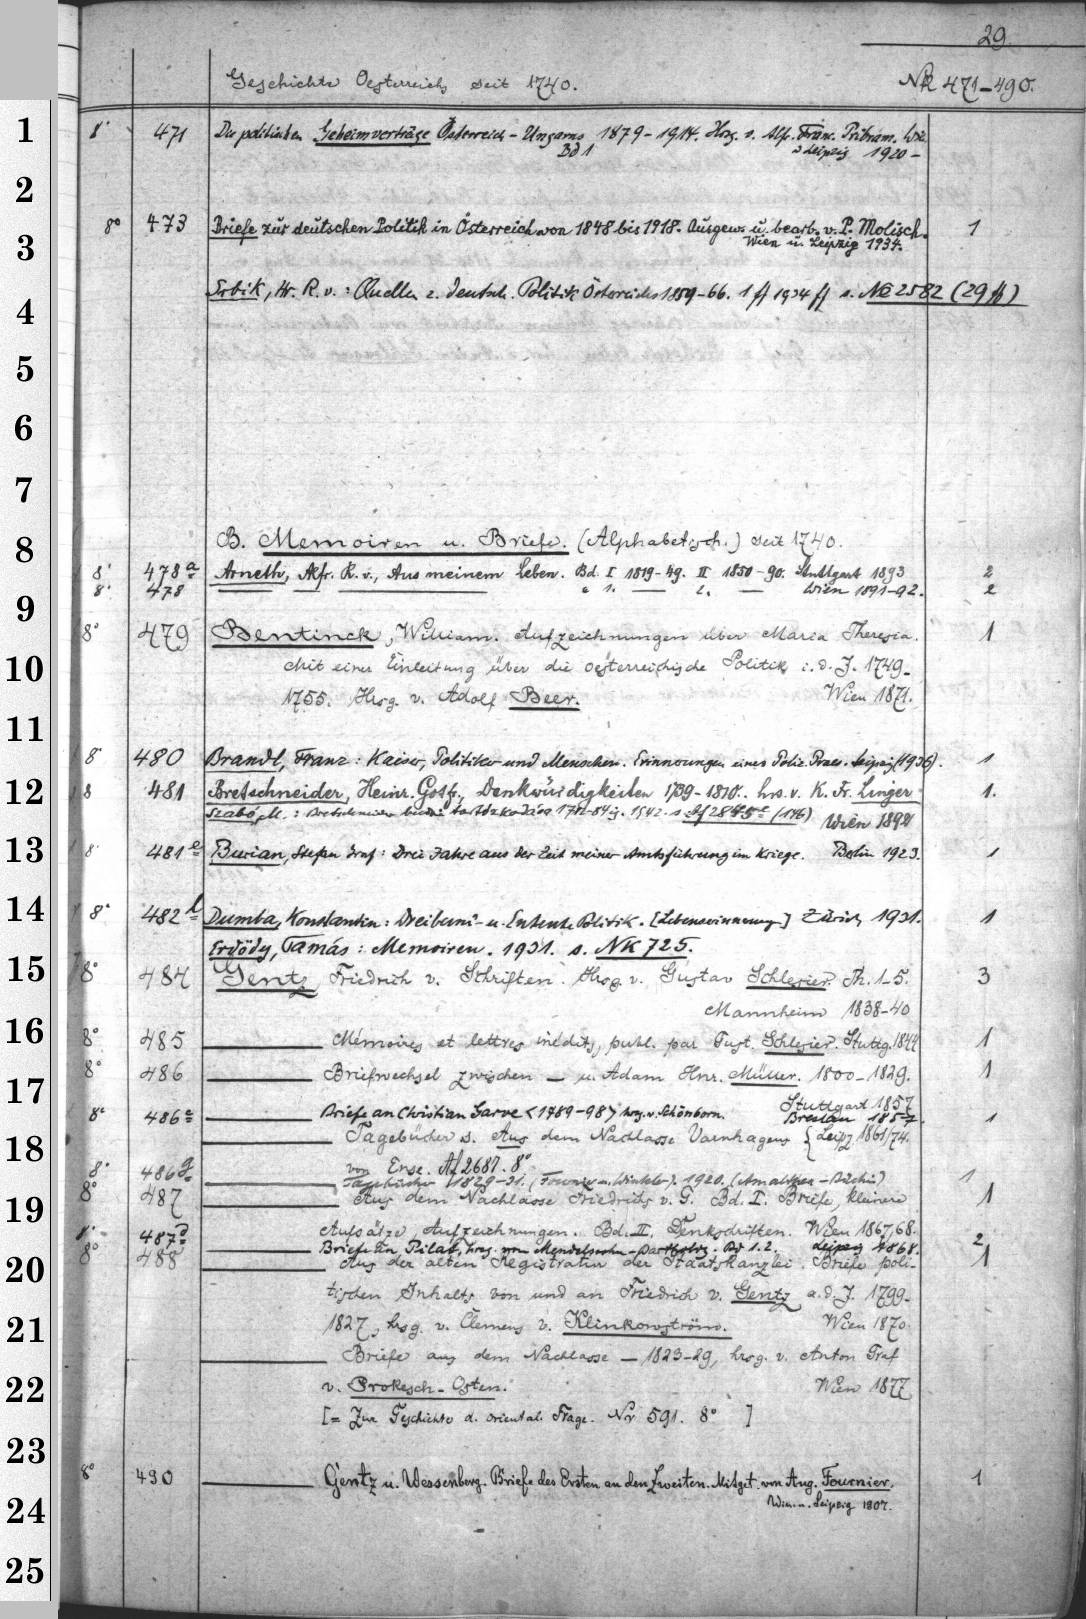 29.
Geschichte Oesterreichs seit 1740. NK 471-490.
1
8° 471 Die politischen Geheimverträge Österreich-Ungarns 1879-1914. Hrsg. v. Alfr. Franc. Pribram. Wien
Bd 1 u Leipzig 1920-
2
8° 473 Briefe zur deutschen Politik in Österreich von 1848 bis 1918. Ausgew. u. bearb. v. P. Molisch. 1
3
Wien u. Leipzig 1934.
Srbik, H. R. v.: Quellen z. deutsch. Politik Österreichs 1859-66. 1 ff 1934 ff s. NK 2582 (29 ff)
4
5
6
7
8
B. Memoiren u. Briefe. (Alphabetisch.) seit 1740.
8° 478a Arneth, Alfr. R. v., Aus meinem Leben. Bd. I 1819-49. II 1850-90. Stuttgart 1893 2
8° 478 " 1. 2. Wien 1891-92. 2
9
8° 479 Bentinck, William. Aufzeichnungen über Maria Theresia. 1
10
Mit einer Einleitung über die oesterreichische Politik i. d. J. 1749-
1755. Hrsg. v. Adolf Beer. Wien 1871.
11
8° 480 Brandl, Franz: Kaiser, Politiker und Menschen. Erinnerungen eines Poliz. Praes. Leipzig (1936). 1
12
8 481 Bretschneider, Heinr. Gotfr., Denkwürdigkeiten 1739-1810. hrs. v. K. Fr. Linger 1.
Szabó, M.: 1782-84 s Af 2845e (146) Wien 1892
13
8° 481a Burian, Stefan Graf: Drei Jahre aus der Zeit meiner Amtsführung im Kriege. Berlin 1923. 1
14
8° 482b Dumba, Konstantin: Dreibund- u. Entente Politik. [Lebenserinnerung] Zürich 1931. 1
Erdödy, Tamás: Memoiren. 1931. s. NK 725.
15
8° 484 Gentz Friedrich v. Schriften. Hrsg. v. Gustav Schlesier. Th. 1-5. 3
Mannheim 1838-40
16
8° 485 Mémoires et lettres inédits, publ. par Gust. Schlesier. Stuttg. 1841 1
8° 486 Briefwechsel zwischen — u. Adam Hnr. Müller. 1800-1829. 1
17
Stuttgart 1857
8° 486a Briefe an Christian Garve <1789-98> hrsg. v. Schönborn. Breslau 1857. 1
18
Tagebücher s. Aus dem Nachlasse Varnhagens {Leipz. 1861/74.
von Ense. Af 2687. 8°
8° 486g Tagebücher 1829-31. (Fournier u. Winkler). 1920. (Amalthea-Bücherei) 1
19
8° 487 Aus dem Nachlasse Friedrichs v. G. Bd. I. Briefe, kleinere 1
Aufsätze Aufzeichnungen. Bd. II. Denkschriften. Wien 1867,68.
8° 487a Briefe an Pilat, hrsg. von Mendelssohn-Bartholdy. Bd 1.2. Leipzig 1868. 2
20
8° 488 Aus der alten Registratur der Staatskanzlei. Briefe poli- 1
tischen Inhalts von und an Friedrich v. Gentz a. d. J. 1799-
21
1827, hrsg. v. Clemens v. Klinkowström. Wien 1870
Briefe aus dem Nachlasse — 1823-29, hrsg. v. Anton Graf
22
v. Prokesch-Osten. Wien 1877
[= Zur Geschichte d. oriental. Frage. Nr 591. 8° ]
23
8° 490 Gentz u. Wessenberg. Briefe des Ersten an den Zweiten. Mitget. von Aug. Fournier. 1
24
Wien u. Leipzig 1907.
25